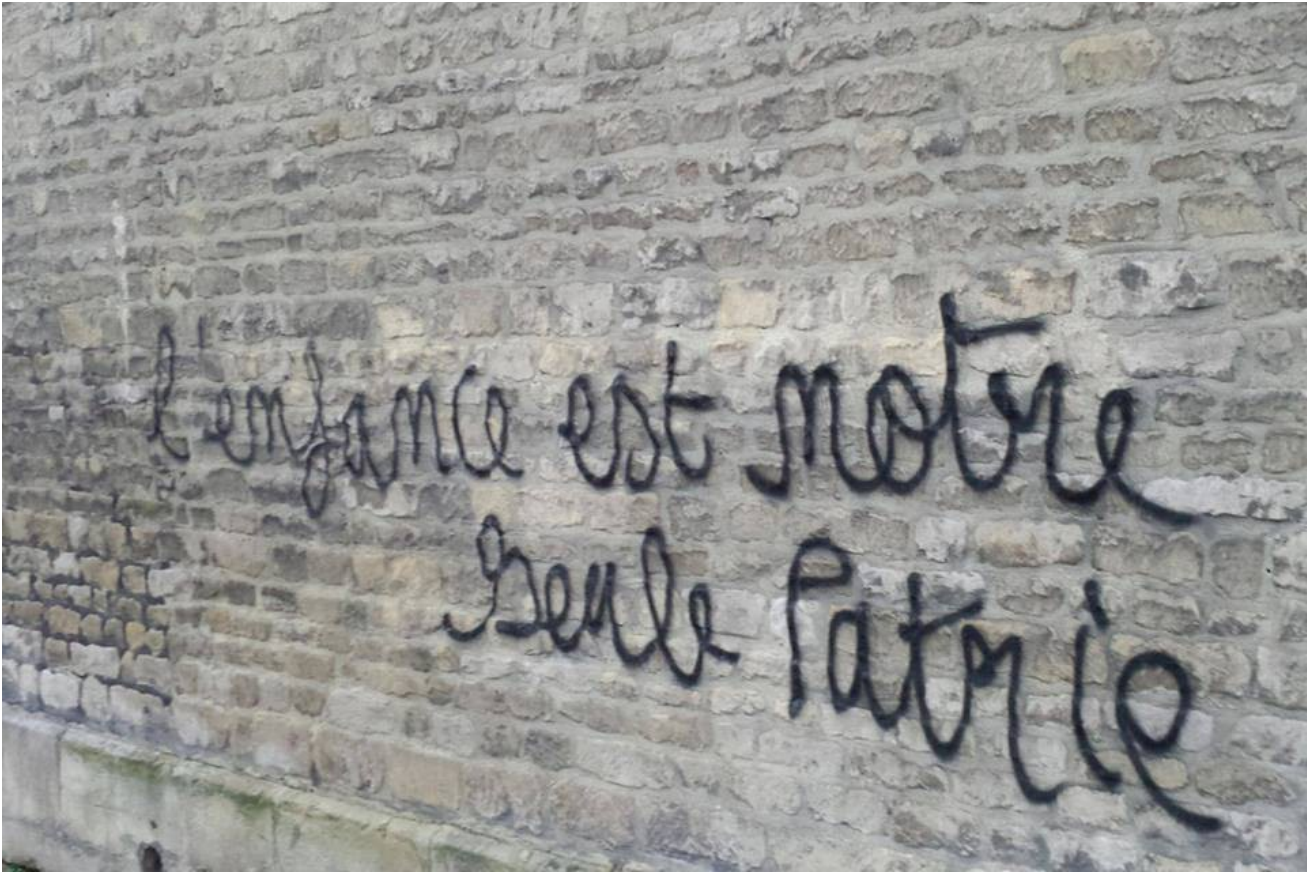 l'enfance est notre
Seule Patrie